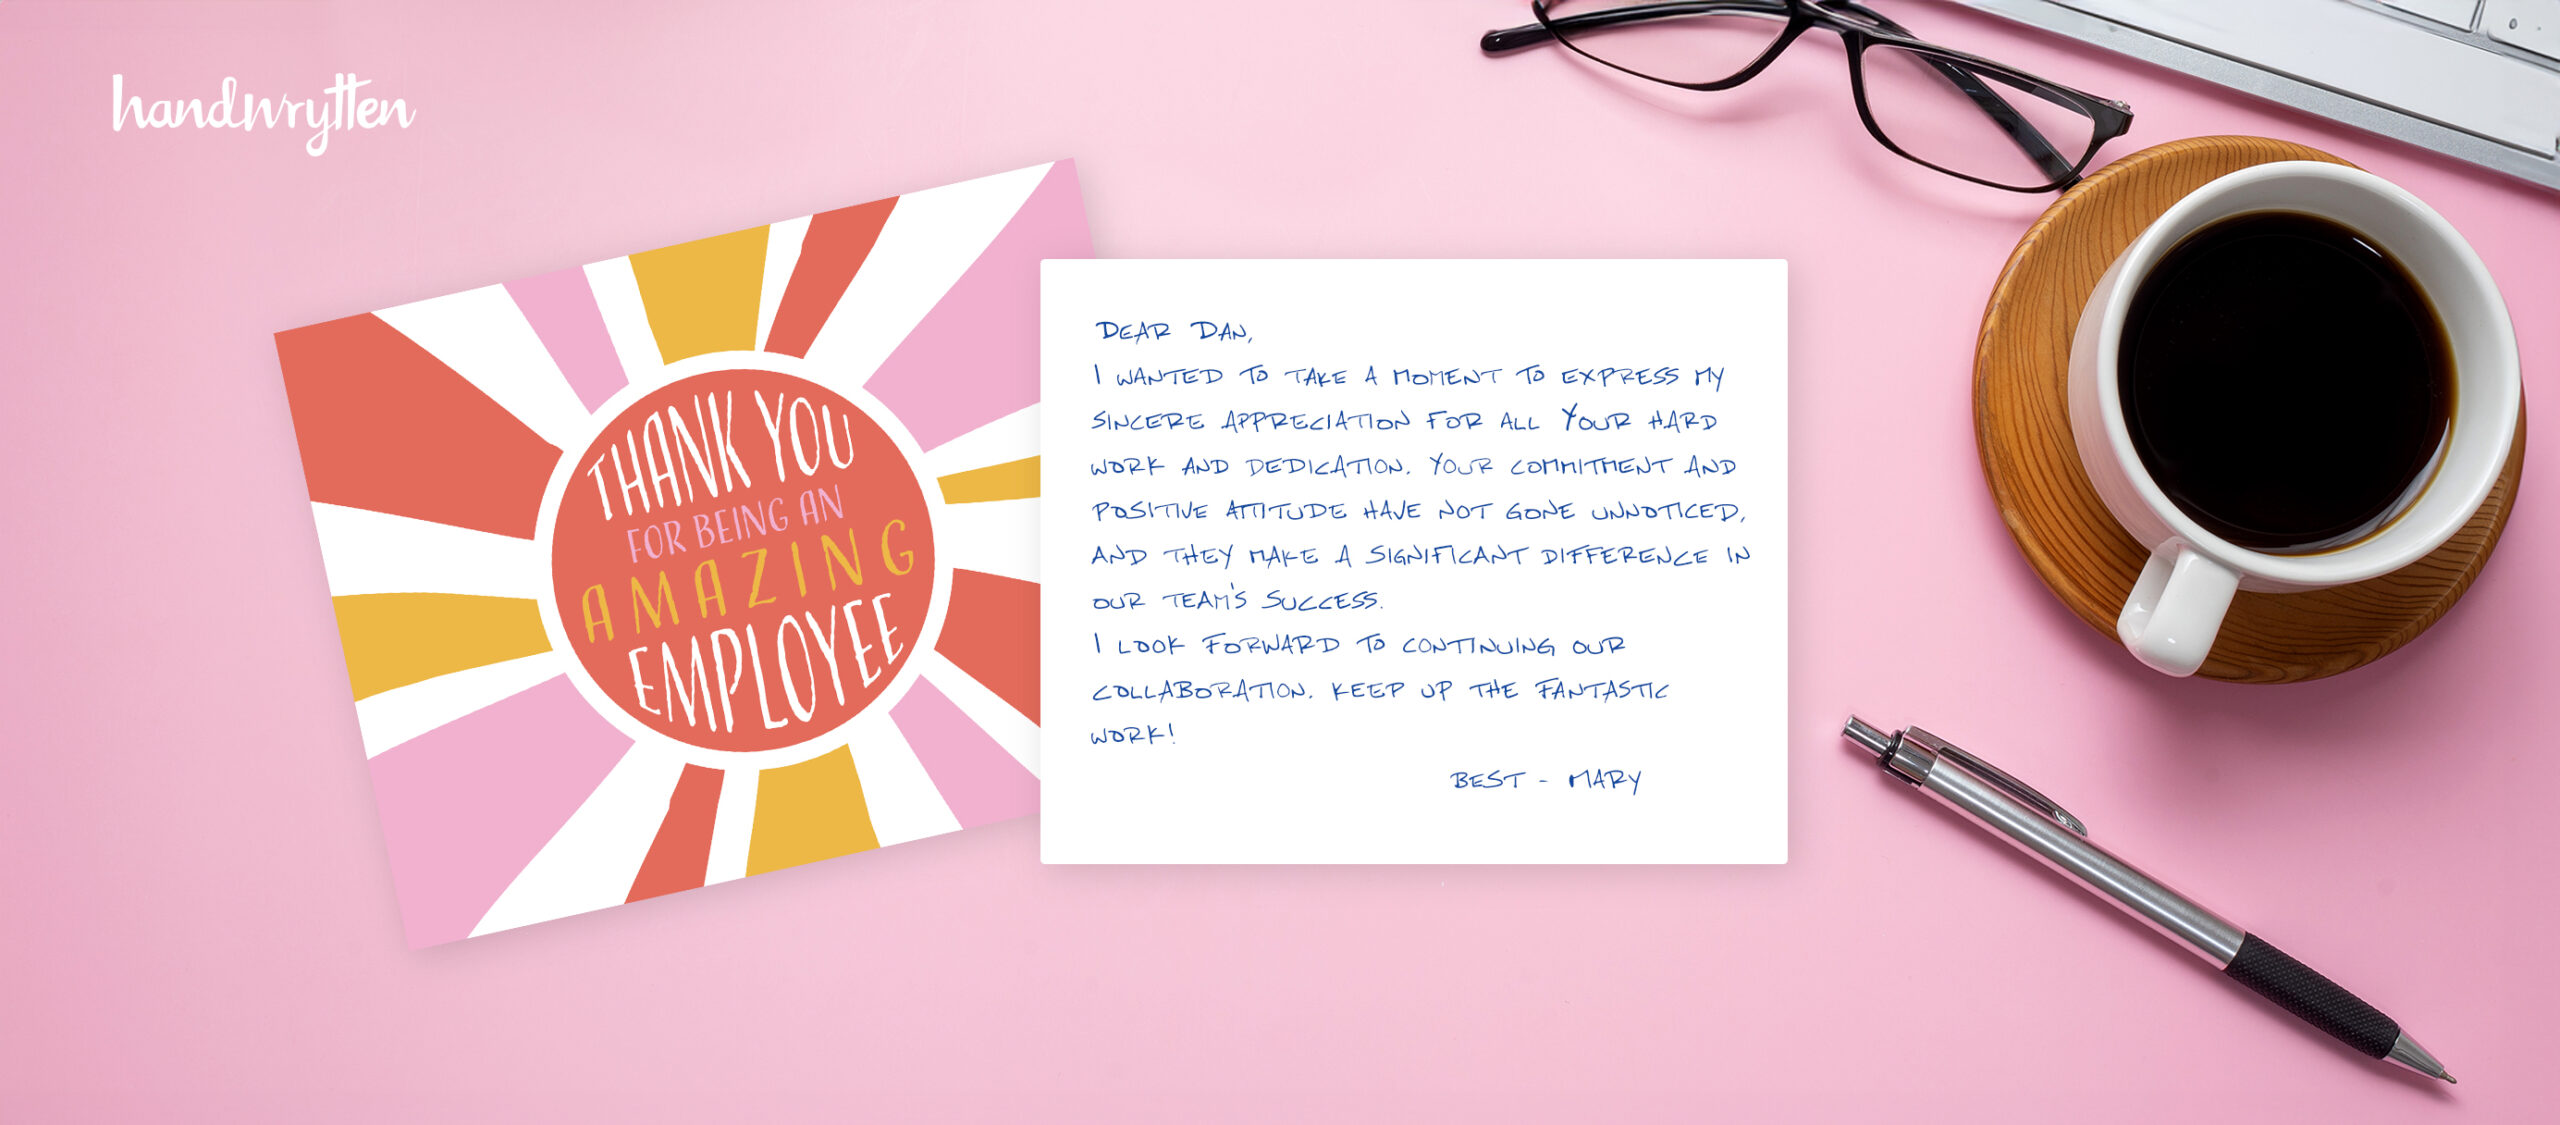 handwrytten
THANK YOU
FOR BEING AN
AMAZING
EMPLOYEE
DEAR DAN,
I WANTED TO TAKE A MOMENT TO EXPRESS MY
SINCERE APPRECIATION FOR ALL YOUR HARD
WORK AND DEDICATION. YOUR COMMITMENT AND
POSITIVE ATTITUDE HAVE NOT GONE UNNOTICED,
AND THEY MAKE A SIGNIFICANT DIFFERENCE IN
OUR TEAM'S SUCCESS.
I LOOK FORWARD TO CONTINUING OUR
COLLABORATION. KEEP UP THE FANTASTIC
WORK!
BEST - MARY